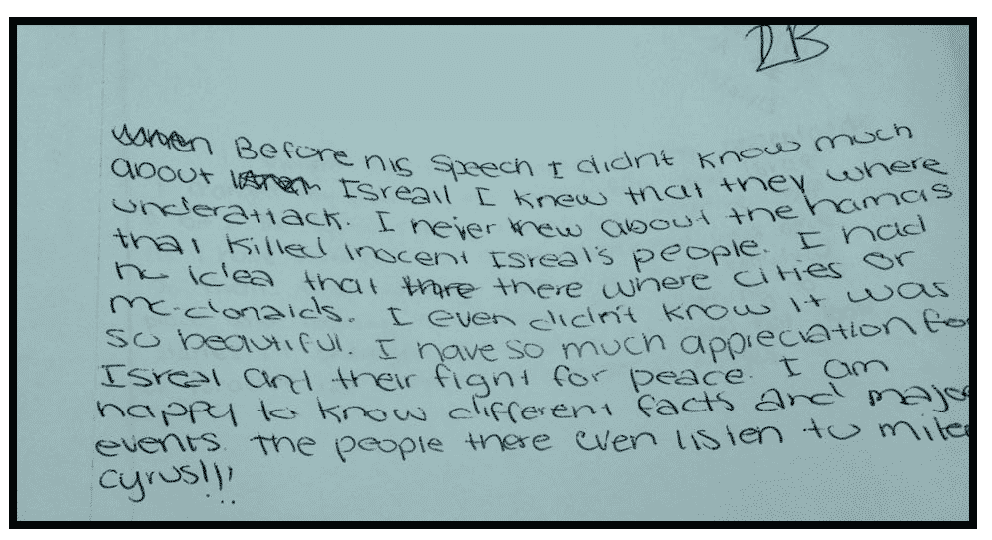 2B
Before his speech I didn't know much
about Isreall I knew that they where
underattack. I never knew about the hamas
that killed inocent Isreal's people. I had
no idea that there where cities or
mc-donalds. I even didn't know it was
so beautiful. I have so much appreciation for
Isreal and their fight for peace. I am
happy to know different facts and major
events. The people there even listen to
cyrus!!!